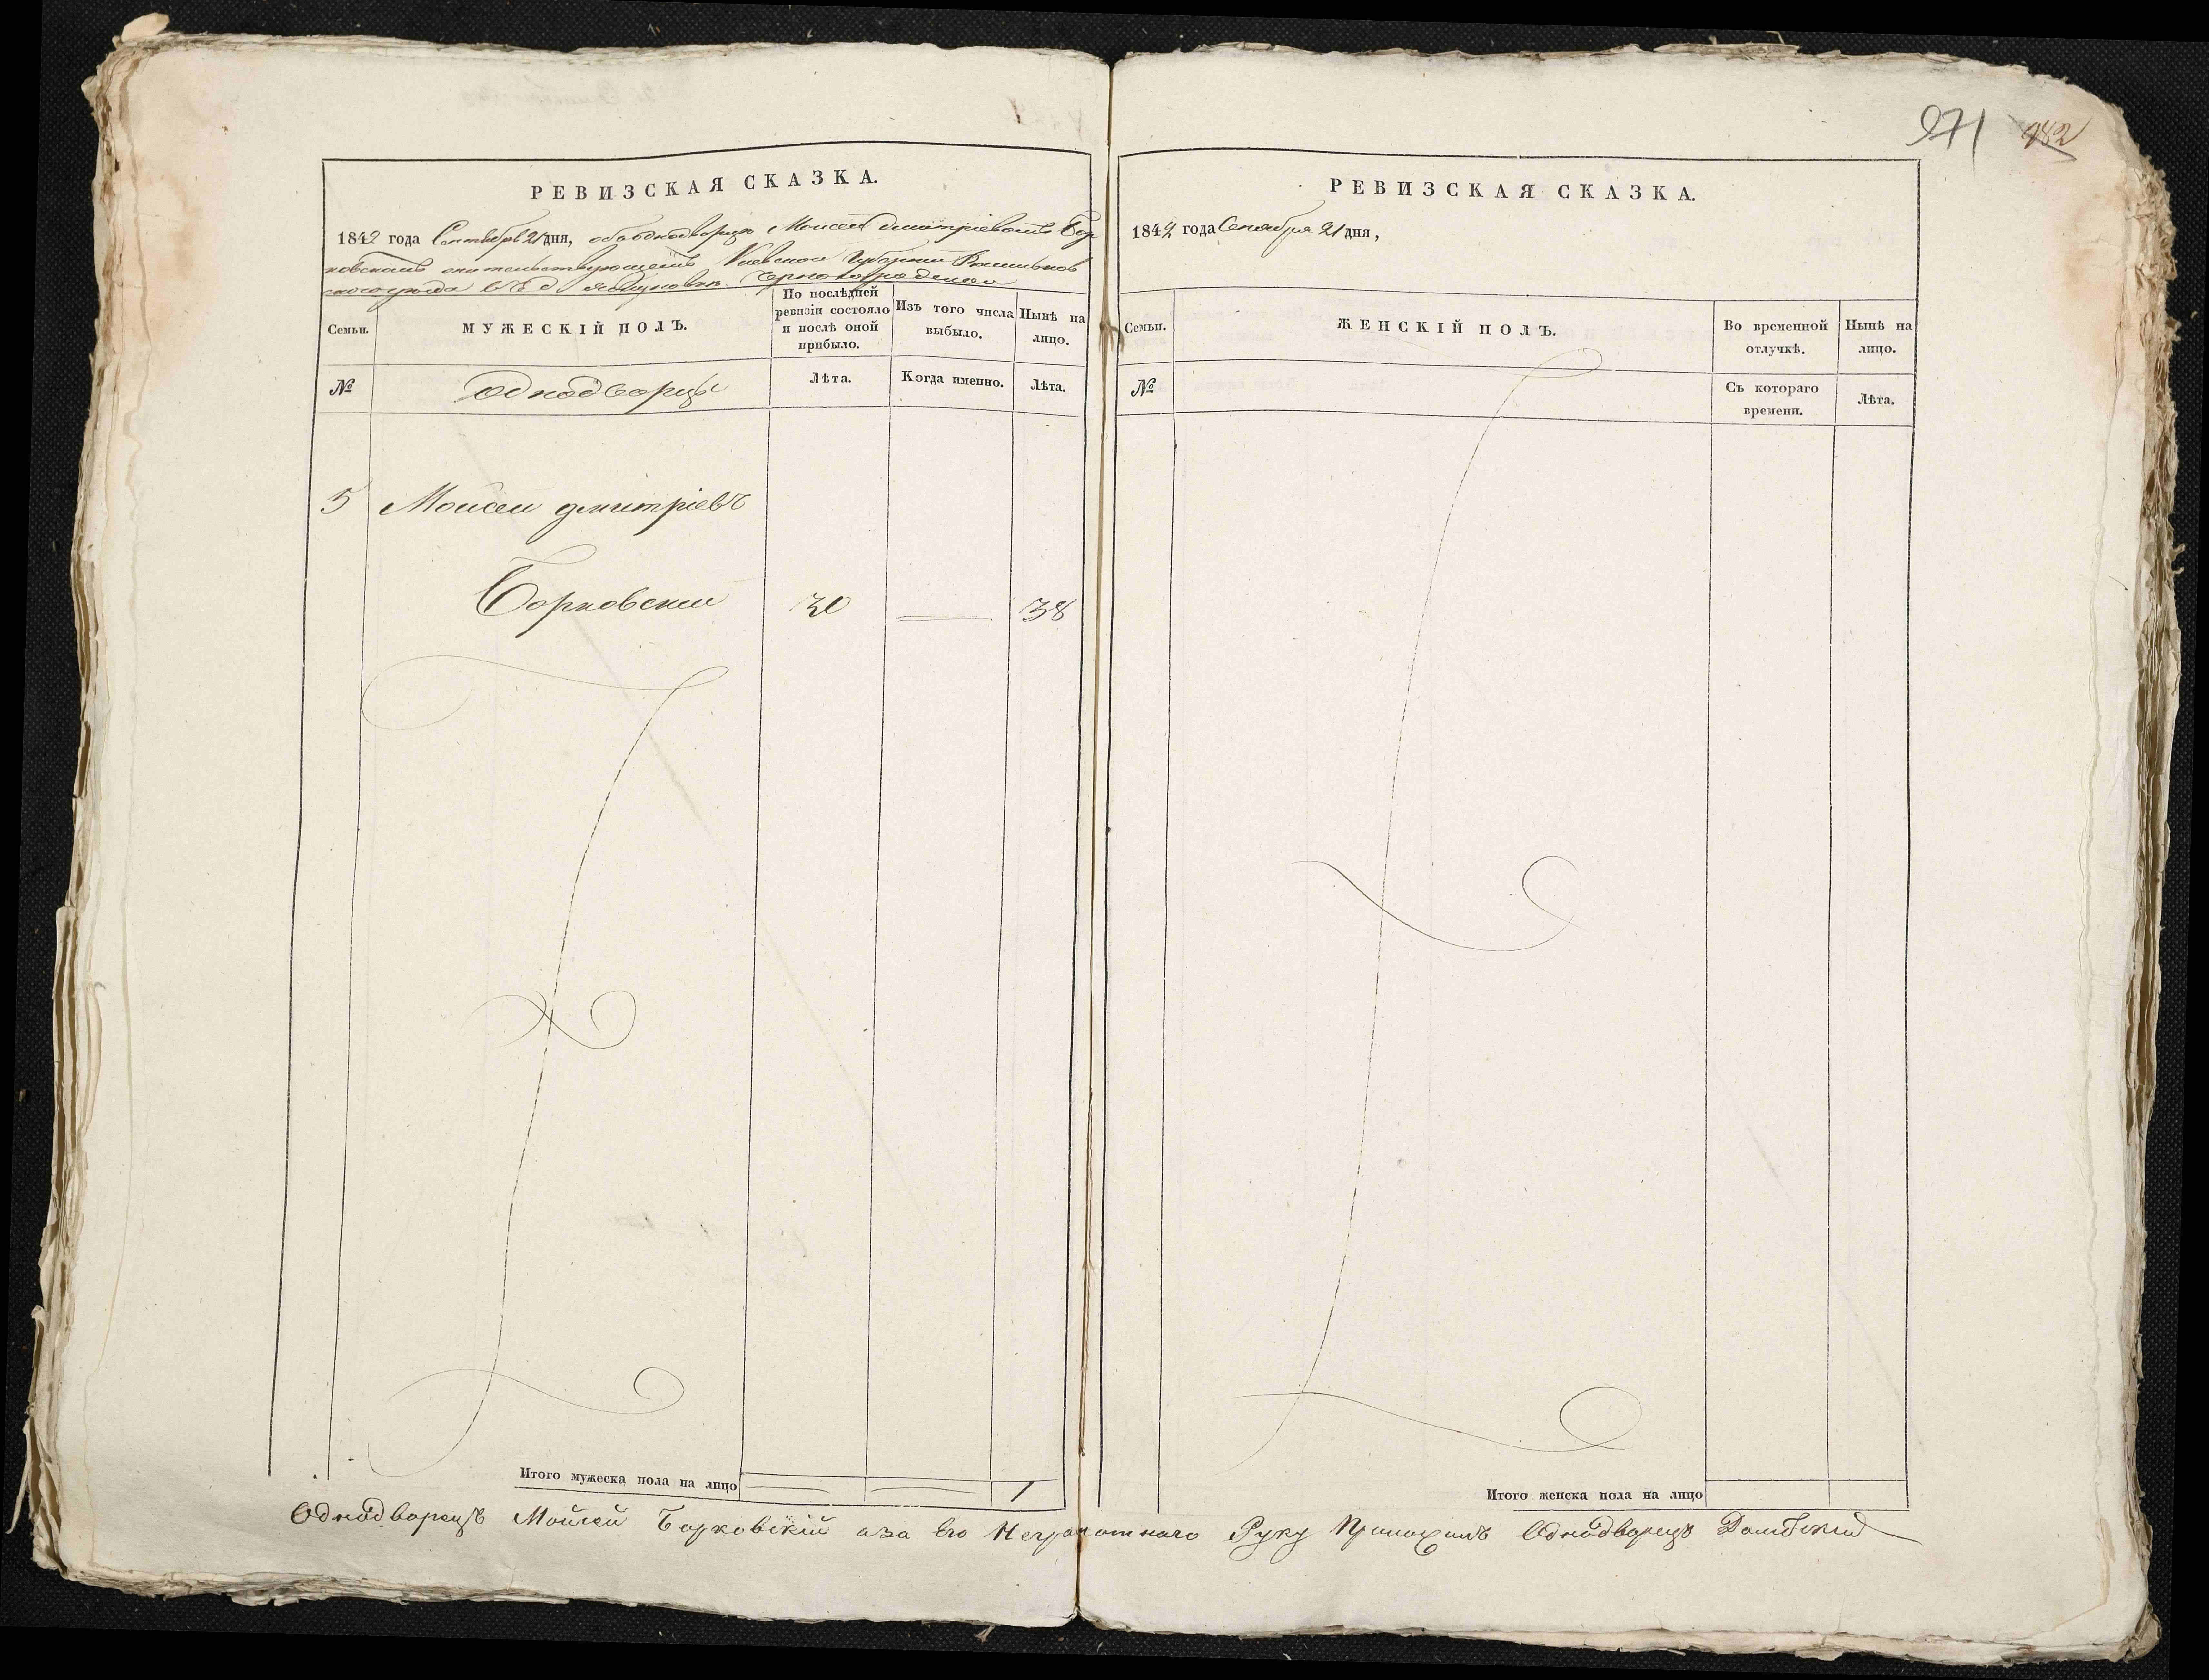 271 982
РЕВИЗСКАЯ СКАЗКА.
1842 года Сентября 21 дня, об однодворце Моисее Дмитріевомъ Бор
ковскомъ жительствующемъ Киевской Губерніи Васильков
скаго уезда въ
Семьи.
МУЖЕСКІЙ ПОЛЪ.
По послѣдней ревизіи состояло и послѣ оной прибыло.
Изъ того числа выбыло.
Нынѣ на лицо.
№
Однодворцы
Лѣта.
Когда именно.
Лѣта.
5 Моисей Дмитріевъ
Борковский 30 38
Итого мужеска пола на лицо 1
РЕВИЗСКАЯ СКАЗКА.
1842 года Сентября 21 дня,
Семьи.
ЖЕНСКІЙ ПОЛЪ.
Во временной отлучкѣ.
Нынѣ на лицо.
№
Съ котораго времени.
Лѣта.
Итого женска пола на лицо
Однодворецъ Мойсей Борковскій а за Его Неграмотнаго Руку Приложилъ Однодворецъ Домбский